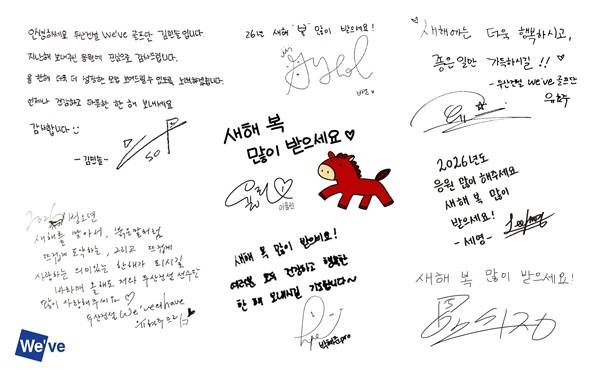 안녕하세요 두산건설 We've 골프단 김민솔입니다.
지난해 보내주신 응원에 진심으로 감사드립니다.
올 한해 더욱 더 성장한 모습 보여드릴 수 있도록 노력하겠습니다.
언제나 건강하고 따뜻한 한 해 보내세요
감사합니다
- 김민솔 -
26년 새해 "복" 많이 받으세요!
새해에는 더욱 행복하시고,
좋은일만 가득하시길!!
- 두산건설 We've 골프단
유효주
새해 복
많이 받으세요
이율린
2026년도
응원 많이 해주세요
새해 복 많이
받으세요!
- 세영 -
2026
새해를 맞아서, 붉은말처럼
뜨겁게 도약하는, 그리고 뜨겁게
사랑하는 의미있는 한해가 되시길
바라며 올해도 저와 두산건설 선수들
많이 사랑해주세요
두산건설 We've
새해 복 많이 받으세요!
여러분 모두 건강하고 행복한
한 해 보내시길 기도합니다~
박혜준pro
새해 복 많이 받으세요!
We've